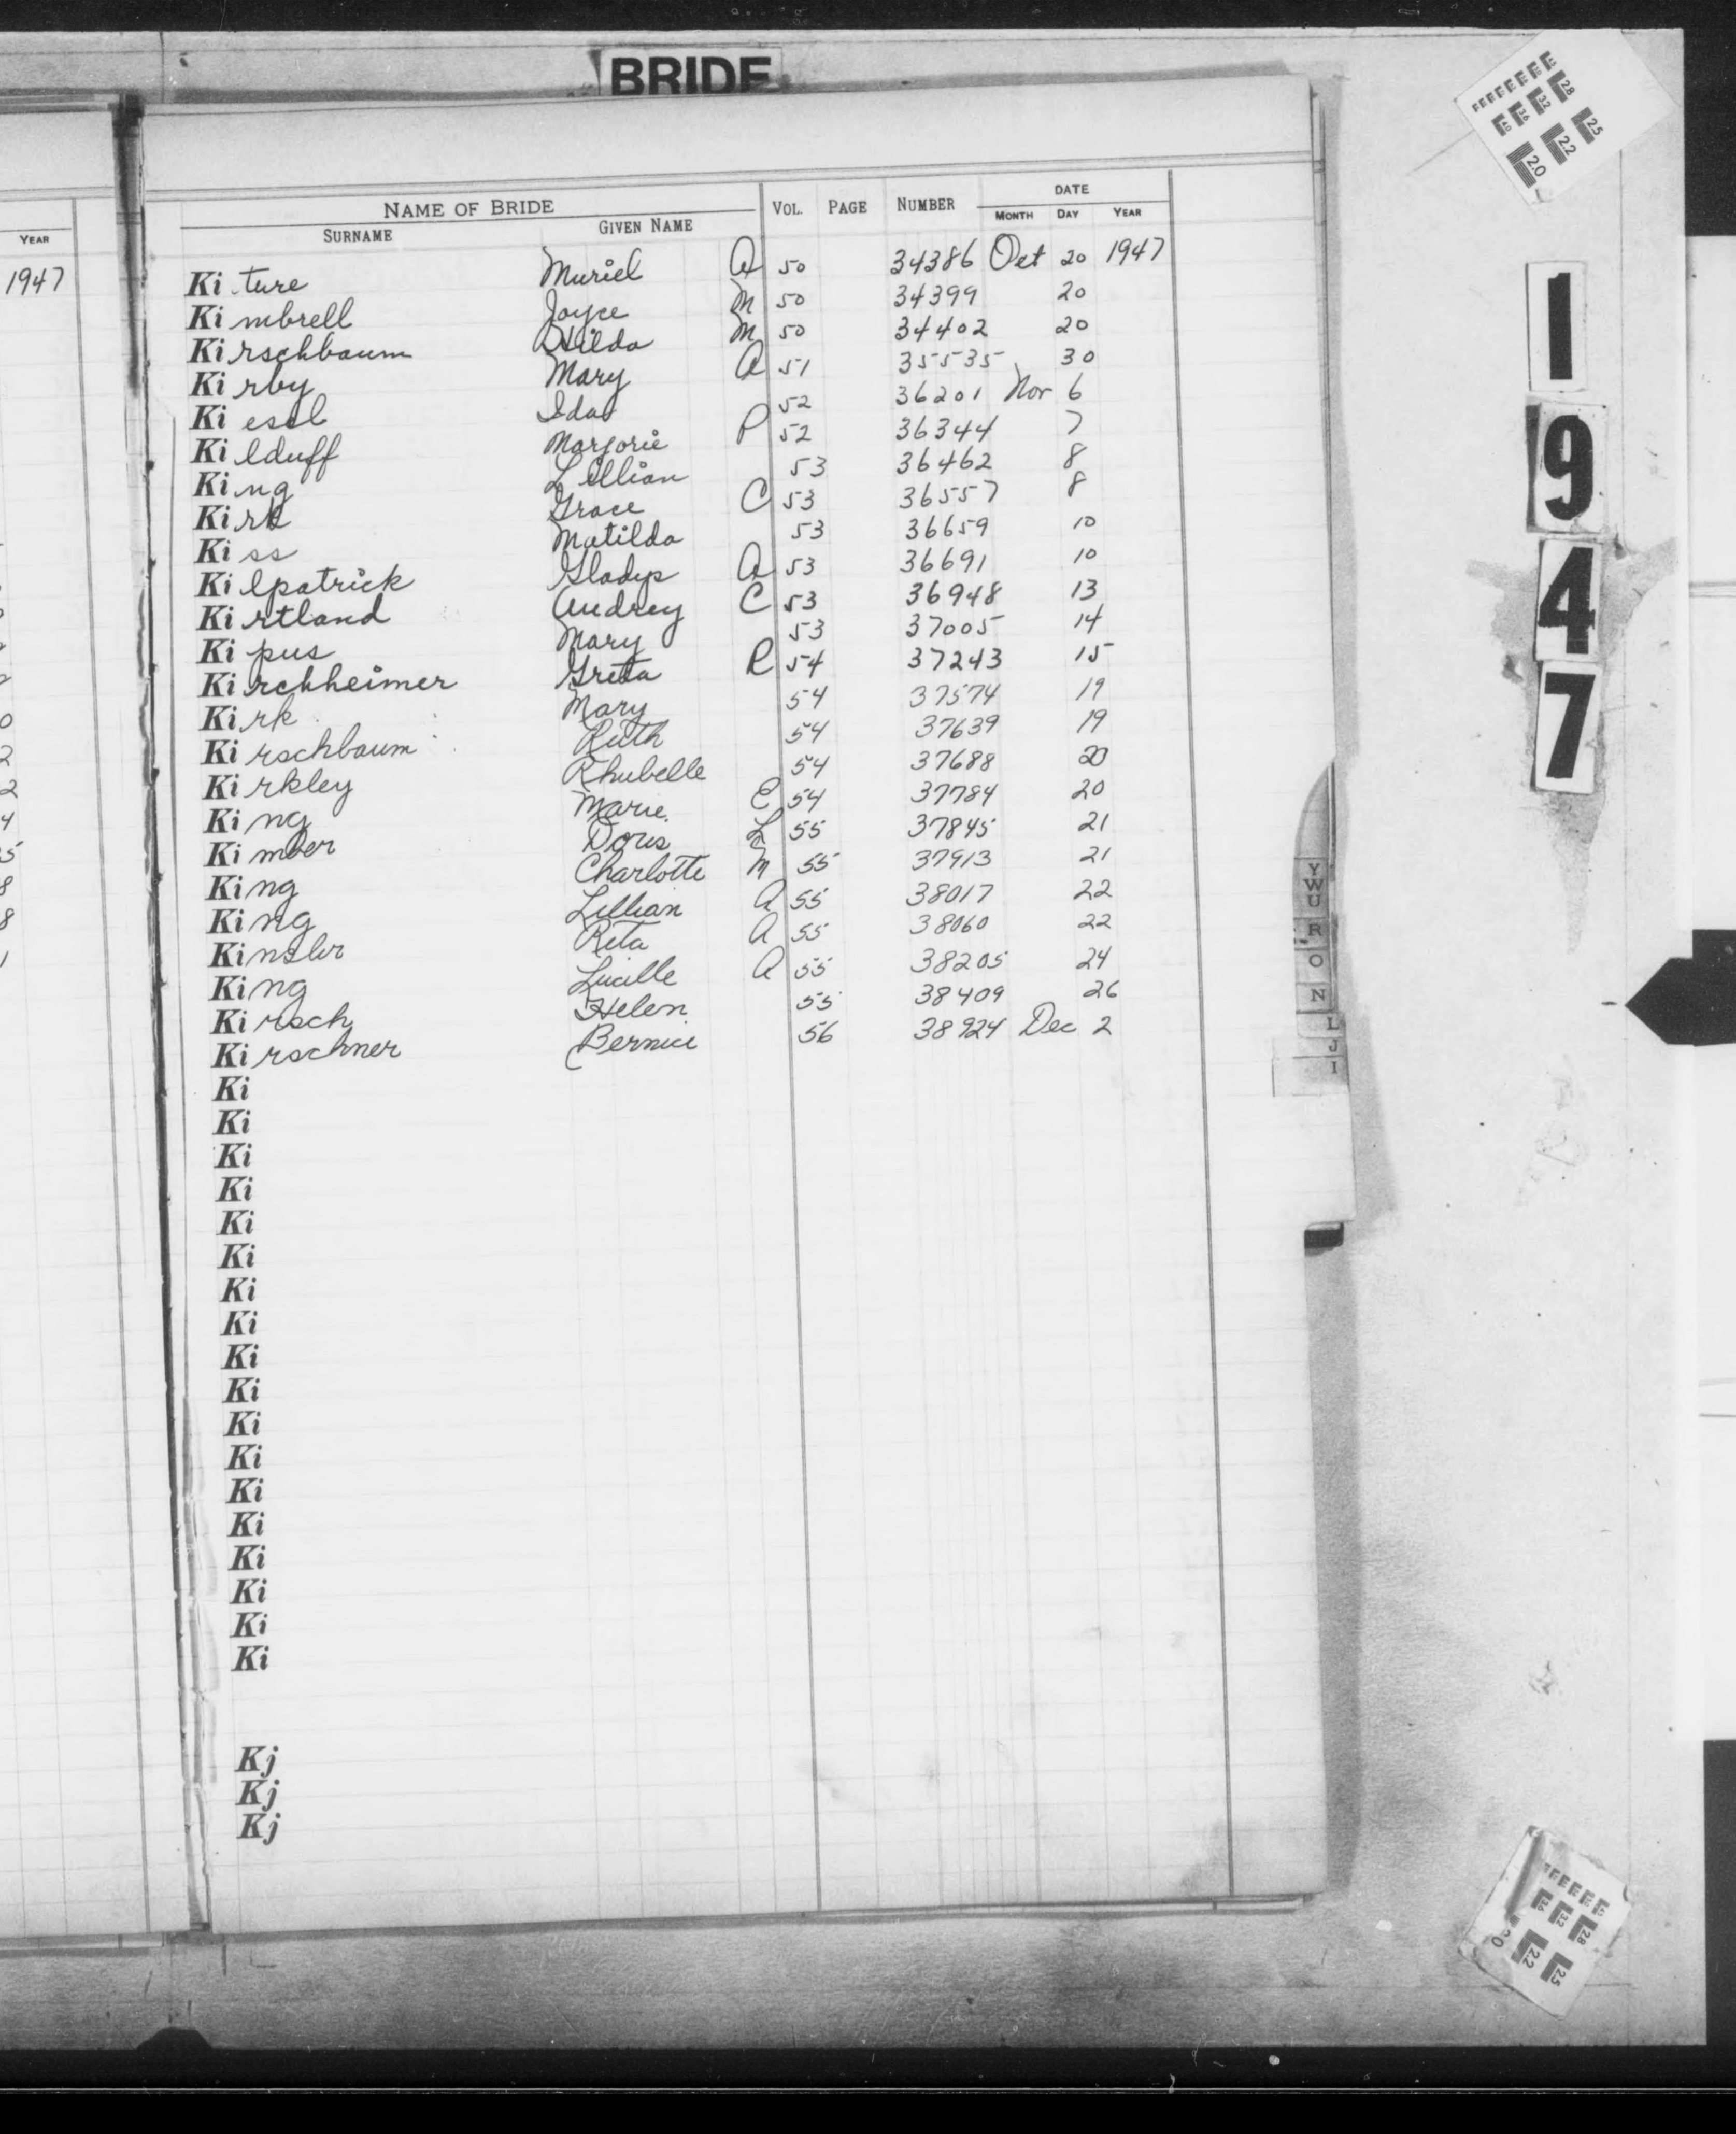 BRIDE
YEAR
1947
NAME OF BRIDE VOL. PAGE NUMBER DATE
SURNAME GIVEN NAME MONTH DAY YEAR
Kiture Muriel A 50 34386 Oct 20 1947
Kimbrell Joyce M 50 34399 20
Kirschbaum Hilda M 50 34402 20
Kirby Mary A 51 35535 30
Kiesel Ida 52 36201 Nov 6
Kilduff Marjorie P 52 36344 7
King Lillian 53 36462 8
Kirk Grace C 53 36557 8
Kiss Matilda 53 36659 10
Kilpatrick Gladys A 53 36691 10
Kirtland Audrey C 53 36948 13
Kipus Mary 53 37005 14
Kirchheimer Greta R 54 37243 15
Kirk Mary 54 37574 19
Kirschbaum Ruth 54 37639 19
Kirkley Rhubelle 54 37688 20
King Marie E 54 37784 20
Kimber Doris L 55 37845 21
King Charlotte M 55 37913 21
King Lillian A 55 38017 22
Kinsler Rita A 55 38060 22
King Lucille A 55 38205 24
Kirsch Helen 55 38409 26
Kirschner Bernice 56 38924 Dec 2
Ki
Ki
Ki
Ki
Ki
Ki
Ki
Ki
Ki
Ki
Ki
Ki
Ki
Ki
Ki
Ki
Ki
Ki
Kj
Kj
Kj
1
9
4
7